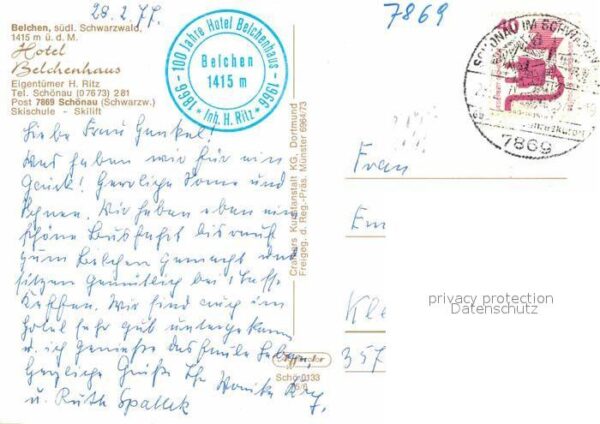 28.2.77.
7869
Belchen, südl. Schwarzwald,
1415 m ü. d. M.
Hotel
Belchenhaus
Eigentümer H. Ritz
Tel. Schönau (07673) 281
Post 7869 Schönau (Schwarzw.)
Skischule - Skilift
1866 - 100 Jahre Hotel Belchenhaus - 1966
Belchen
1415 m
* Inh. H. Ritz *
SCHÖNAU IM SCHWARZW
7869
Liebe Frau Gunkel!
Was haben wir für ein
Glück! Herrliche Sonne und
Wir haben eben eine
schöne Busfahrt bis rauf
zum Belchen gemacht und
sitzen gemütlich bei 1 Tasse
Kaffee. Wir sind auch im
Hotel sehr gut untergekommen
u. ich genieße das faule Leben.
Herzliche Grüße Ihre Monika
u. Ruth Spallek
Cramers Kunstanstalt KG, Dortmund
Freigeg. d. Reg.-Präs. Münster 6964/73
Schö 0133
Frau
Em
Kle
357
privacy protection
Datenschutz